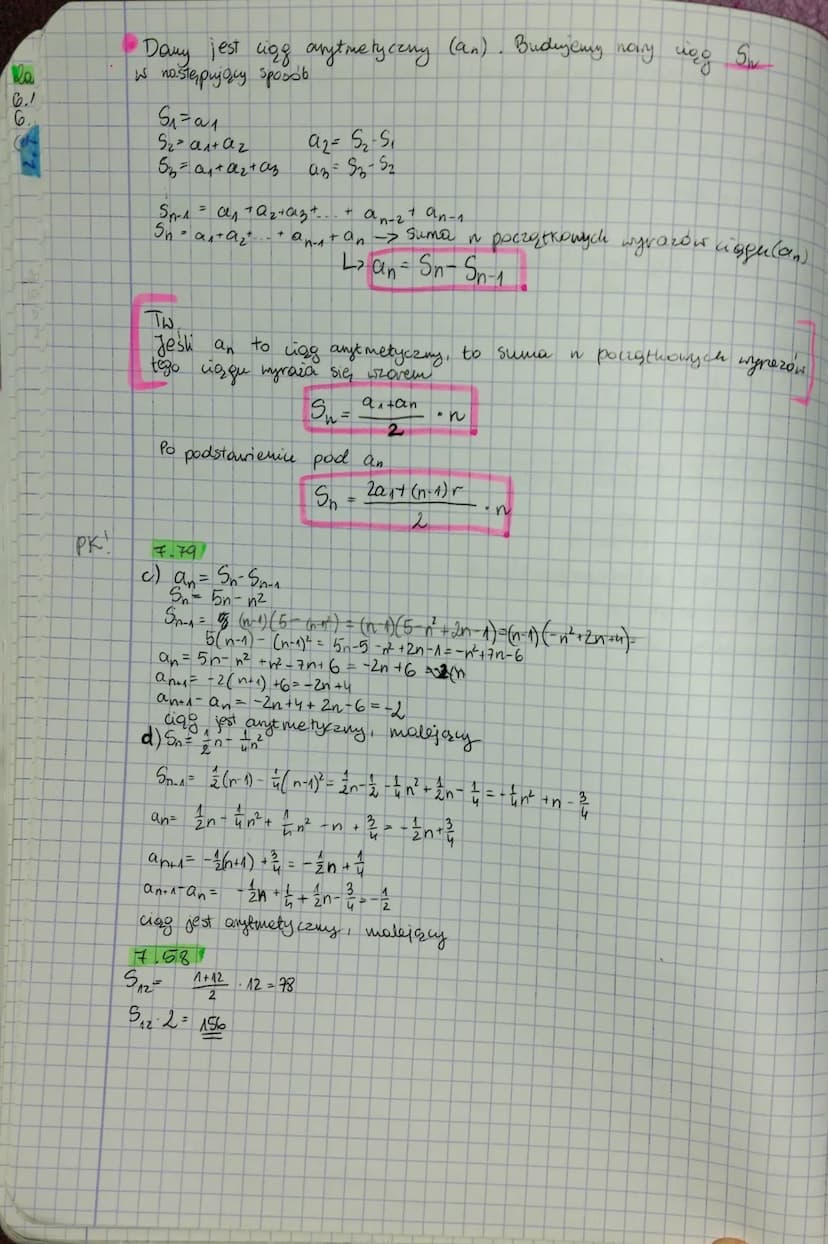 Dany jest ciąg arytmetyczny (an). Budujemy nowy ciąg Sn
w następujący sposób
Ra
6.1
6.
S1=a1
S2=a1+a2 a2= S2-S1
S3=a1+a2+a3 a3= S3-S2
Sn-1 = a1+a2+a3+...+ an-2+ an-1
Sn= a1+a2+...+an-1+an -> suma n początkowych wyrazów ciągu(an)
↳ an= Sn-Sn-1
Tw.
Jeśli an to ciąg arytmetyczny, to suma n początkowych wyrazów
tego ciągu wyraża się wzorem
Sn= (a1+an)/2 · n
Po podstawieniu pod an
Sn = (2a1+(n-1)r)/2 · n
PK!
7.79
c) an= Sn-Sn-1
Sn= 5n-n²
Sn-1= (n-1)(5-(n-n²) = (n-1)(5-n²+2n-1)=(n-1)(-n²+2n+4)=
5(n-1)-(n-1)²= 5n-5-n²+2n-1=-n²+7n-6
an= 5n-n²+n²-7n+6 = -2n+6
an+1= -2(n+1)+6=-2n+4
an+1-an= -2n+4+2n-6=-2
ciąg jest arytmetyczny, malejący
d) Sn= 1/2n - 1/4n²
Sn-1= 1/2(n-1) - 1/4(n-1)²= 1/2n-1/2-1/4n²+1/2n-1/4=-1/4n²+n-3/4
an= 1/2n-1/4n²+1/4n²-n+3/4=-1/2n+3/4
an+1= -1/2(n+1)+3/4=-1/2n+1/4
an+1-an= -1/2n+1/4+1/2n-3/4=-1/2
ciąg jest arytmetyczny, malejący
7.58
S12= (1+12)/2 · 12=78
S12·2= 156